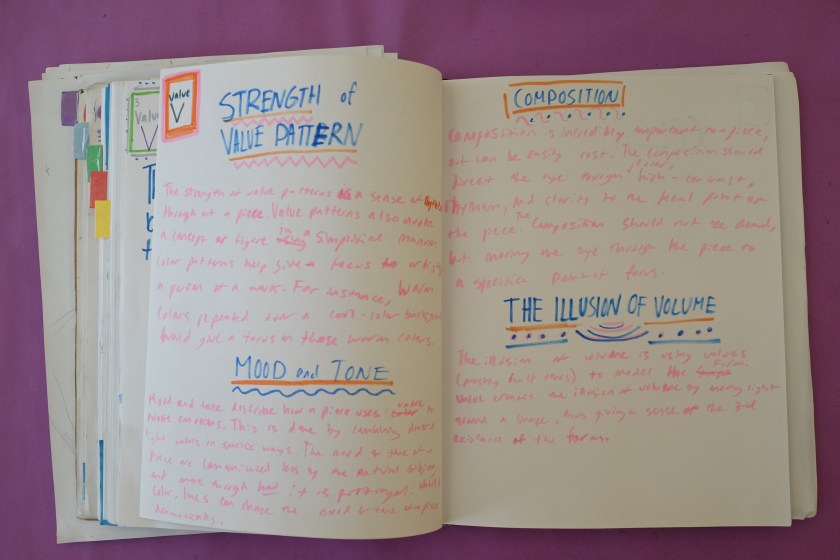 Value
V
STRENGTH of
VALUE PATTERN
The strength of value patterns is a sense of
through out a piece. Value patterns also
a concept or figure in a simplified manner.
Color patterns help give a focus to
a person at a mark. For instance, warm
colors repeated over a cool-color
would give a focus on those warm colors.
MOOD and TONE
Mood and tone describe how a piece uses value to
emotions. This is done by combining
light values in ways. The mood & tone of a
piece
and more through how it is portrayed.
color, lines can change the mood & tone
3
Value
V
COMPOSITION
Composition is incredibly important in a piece,
but can be easily lost. The composition should
direct the eye through high-contrast,
rhythem, and clarity to the focal point of
the piece. The composition should not be dead,
but moving the eye through the piece to
a specific point of focus.
THE ILLUSION OF VOLUME
The illusion of volume is using values
to model the form.
Value creates the illusion of volume by moving light
around a shape, thus giving a sense of the 3d
existance of the form.